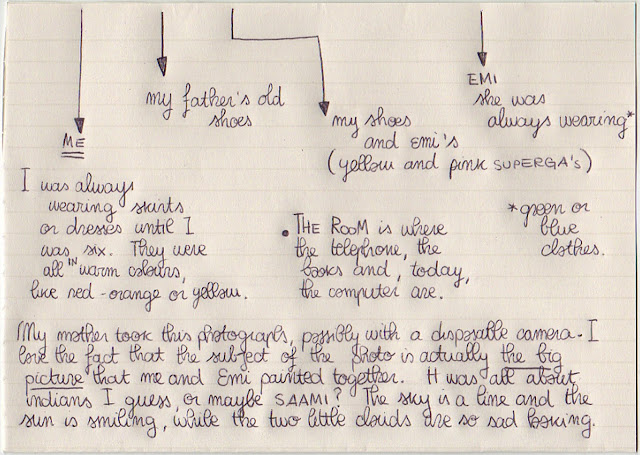 my father's old
shoes
my shoes
and Emi's
(yellow and pink SUPERGA's)
EMI
she was
always wearing*
ME
I was always
wearing skirts
or dresses until I
was six. They were
all IN warm colours,
like red-orange or yellow.
. THE ROOM is where
the telephone, the
books and, today,
the computer are.
*green or
blue
clothes.
My mother took this photograph, possibly with a disposable camera. I
love the fact that the subject of the photo is actually the big
picture that me and Emi painted together. It was all about
indians I guess, or maybe SAAMI? The sky is a line and the
sun is smiling, while the two little clouds are so sad looking.